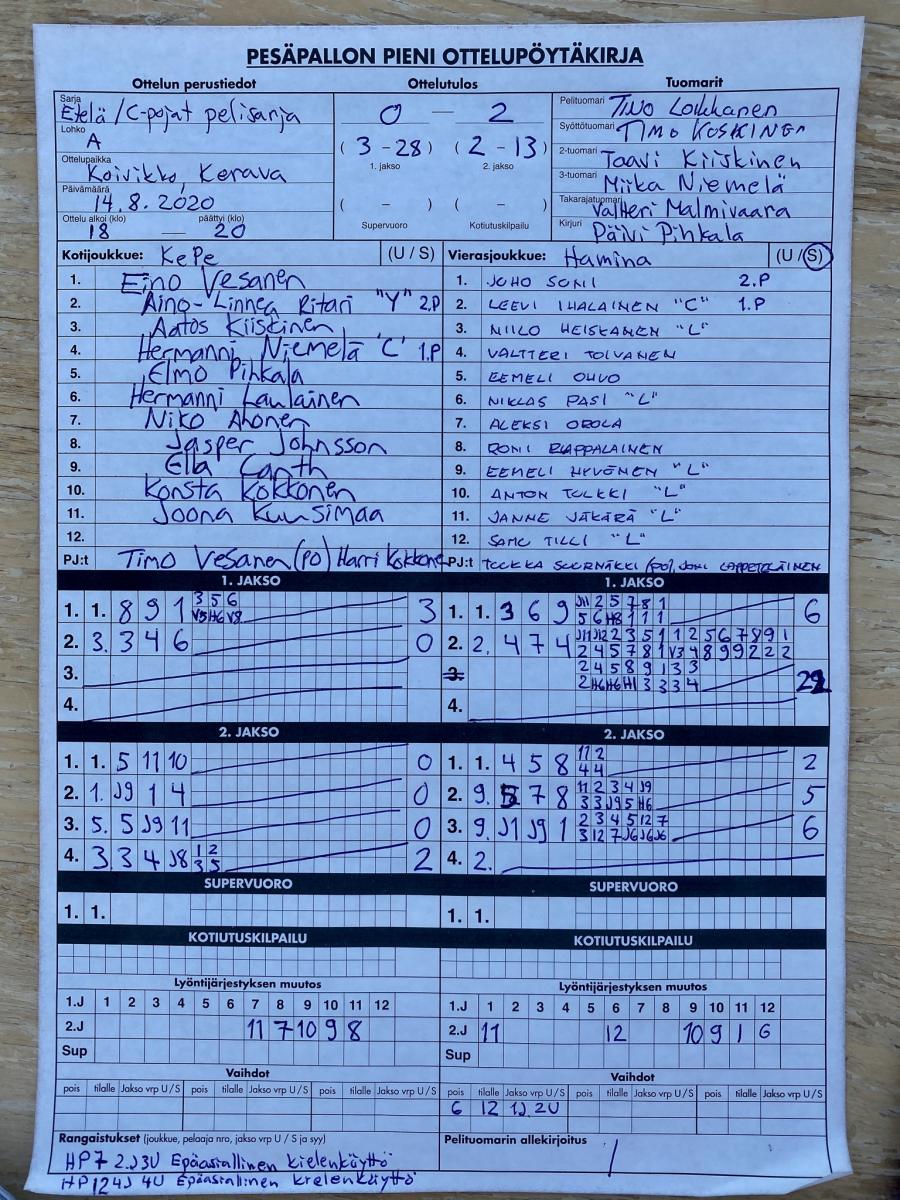 PESÄPALLON PIENI OTTELUPÖYTÄKIRJA
Ottelun perustiedot Ottelutulos Tuomarit
Sarja Etelä / C-pojat pelisarja
Lohko A
Ottelupaikka Koivikko, Kerava
Päivämäärä 14.8.2020
Ottelu alkoi (klo) päättyi (klo)
18 — 20
0 — 2
( 3 - 28 ) ( 2 - 13 )
1. jakso 2. jakso
( – ) ( – )
Supervuoro Kotiutuskilpailu
Pelituomari Timo Loikkanen
Syöttötuomari TIMO KOSKINEN
2-tuomari Taavi Kiiskinen
3-tuomari Miika Niemelä
Takarajatuomari Valtteri Malmivaara
Kirjuri Päivi Pihkala
Kotijoukkue: KePe (U / S)
1. Eino Vesanen
2. Aino-Linnea Ritari "Y" 2.P
3. Aatos Kiiskinen
4. Hermanni Niemelä 'C' 1.P
5. Elmo Pihkala
6. Hermanni Laulainen
7. Niko Ahonen
8. Jasper Johnsson
9. Ella Canth
10. Konsta Kokkonen
11. Joona Kuusimaa
12.
PJ:t Timo Vesanen (PO) Harri Kokkonen
Vierasjoukkue: Hamina (U / S)
1. JUHO SONI 2.P
2. LEEVI IHALAINEN "C" 1.P
3. NIILO HEISKANEN "L"
4. VALTTERI TOIVANEN
5. EEMELI OHVO
6. NIKLAS PASI "L"
7. ALEKSI OROLA
8. RONI RAPPALAINEN
9. EEMELI HYVÖNEN "L"
10. ANTON TULKKI "L"
11. JANNE JÄKÄRÄ "L"
12. SAMU TILLI "L"
PJ:t TUUKKA SUURNÄKKI (PO), JONI LAPPETELÄINEN
1. JAKSO
1. 1. 8 9 1 3 5 6 3
V5 H6 V8
2. 3. 3 4 6 0
3.
4.
1. JAKSO
1. 1. 3 6 9 J11 2 5 7 8 1 6
5 6 H8 1 1 1
2. 2. 4 7 4 J11 J12 2 3 5 1 1 2 5 6 7 8 9 1
2 4 5 7 8 1 V3 4 8 9 9 2 2 2
3. 2 4 5 8 9 1 3 3
2 H6 H6 H1 3 3 3 4 22
4.
2. JAKSO
1. 1. 5 11 10 0
2. 1. J9 1 4 0
3. 5. 5 J9 11 0
4. 3. 3 4 J8 1 2 2
3 5
2. JAKSO
1. 1. 4 5 8 11 2 2
4 4
2. 9. 5 7 8 11 2 3 4 J9 5
3 3 J9 5 H6
3. 9. J1 J9 1 2 3 4 5 12 7 6
3 12 7 J6 J6 J6
4. 2.
SUPERVUORO
1. 1.
SUPERVUORO
1. 1.
KOTIUTUSKILPAILU
KOTIUTUSKILPAILU
Lyöntijärjestyksen muutos
1.J 1 2 3 4 5 6 7 8 9 10 11 12
2.J 11 7 10 9 8
Sup
Lyöntijärjestyksen muutos
1.J 1 2 3 4 5 6 7 8 9 10 11 12
2.J 11 12 10 9 1 6
Sup
Vaihdot
pois tilalle Jakso vrp U / S pois tilalle Jakso vrp U / S pois tilalle Jakso vrp U / S
Vaihdot
pois tilalle Jakso vrp U / S pois tilalle Jakso vrp U / S pois tilalle Jakso vrp U / S
6 12 1J 2U
Rangaistukset (joukkue, pelaaja nro, jakso vrp U / S ja syy)
HP7 2.J3U Epäasiallinen kielenkäyttö
HP12 4J 4U Epäasiallinen kielenkäyttö
Pelituomarin allekirjoitus